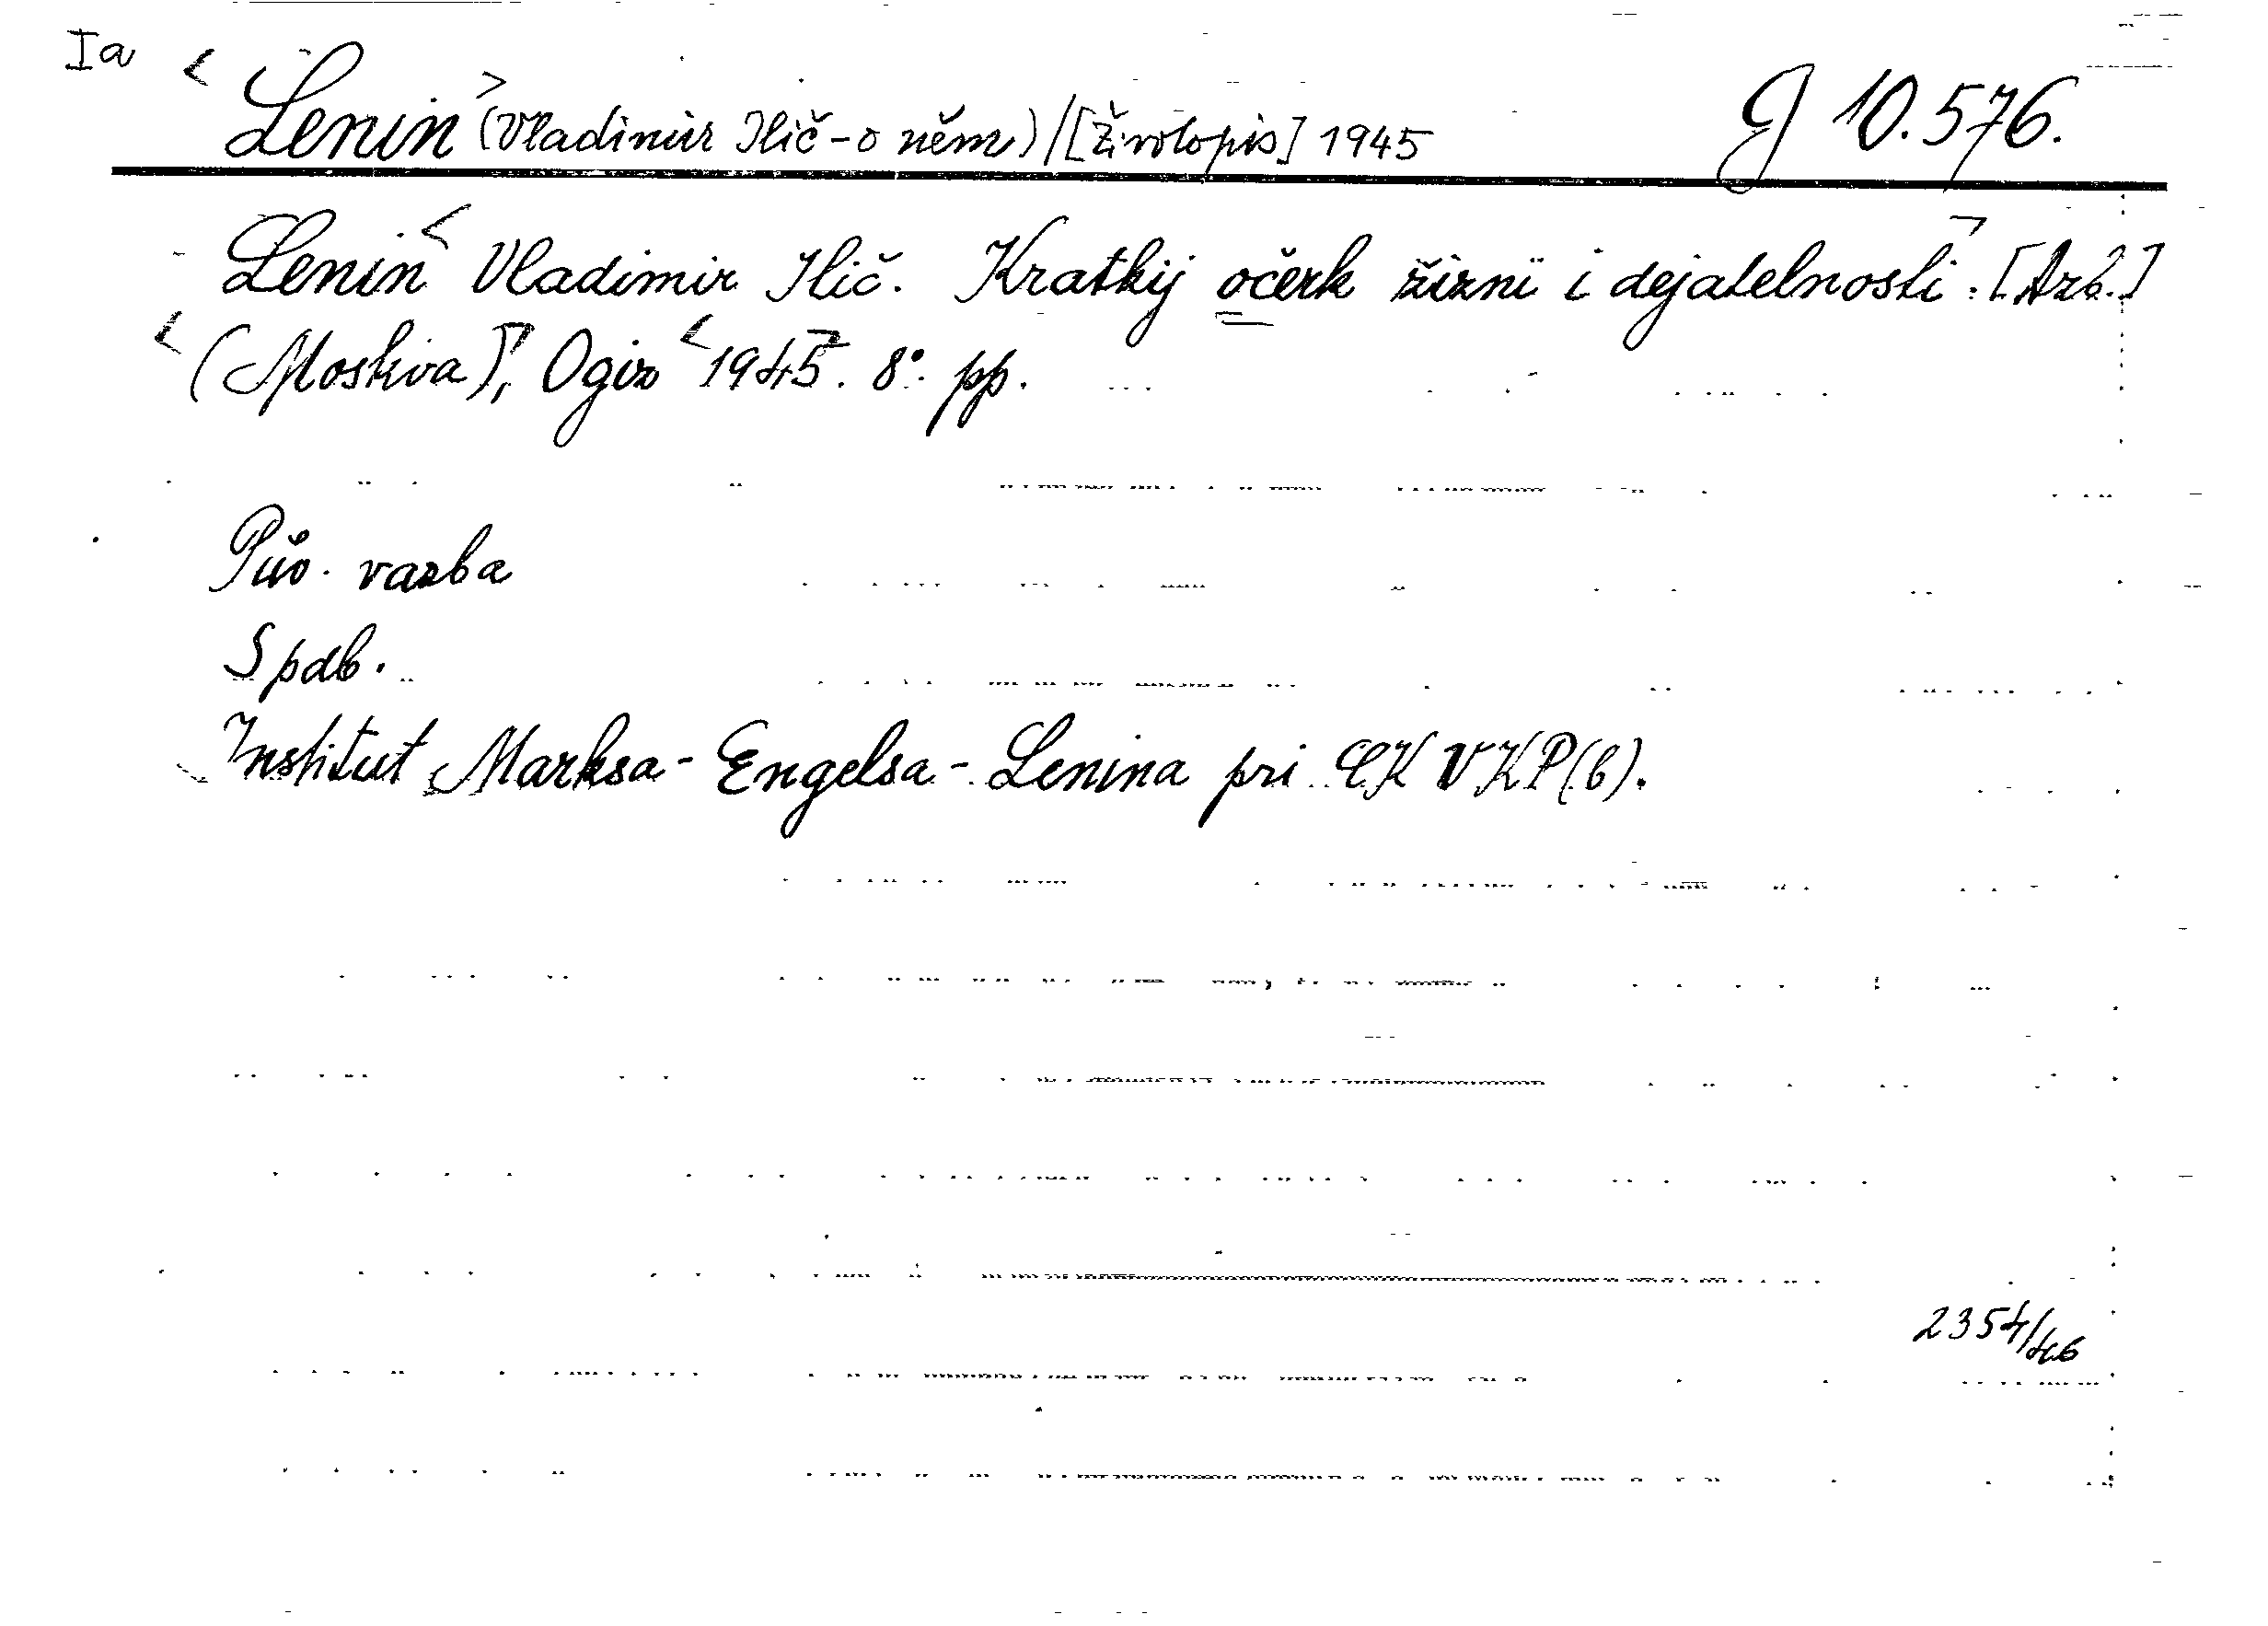 Ia < Lenin > (Vladimir Ilič - o něm) / [Životopis] 1945 G 10.576.
Lenin < Vladimir Ilič. Kratkij očerk žizni i dejatelnosti >. [Arb.]
< (Moskva), Ogiz < 1945 >. 8°. pp.
Pův. vazba
S pdb.
Institut Marksa - Engelsa - Lenina pri CK VKP(b).
2354/46